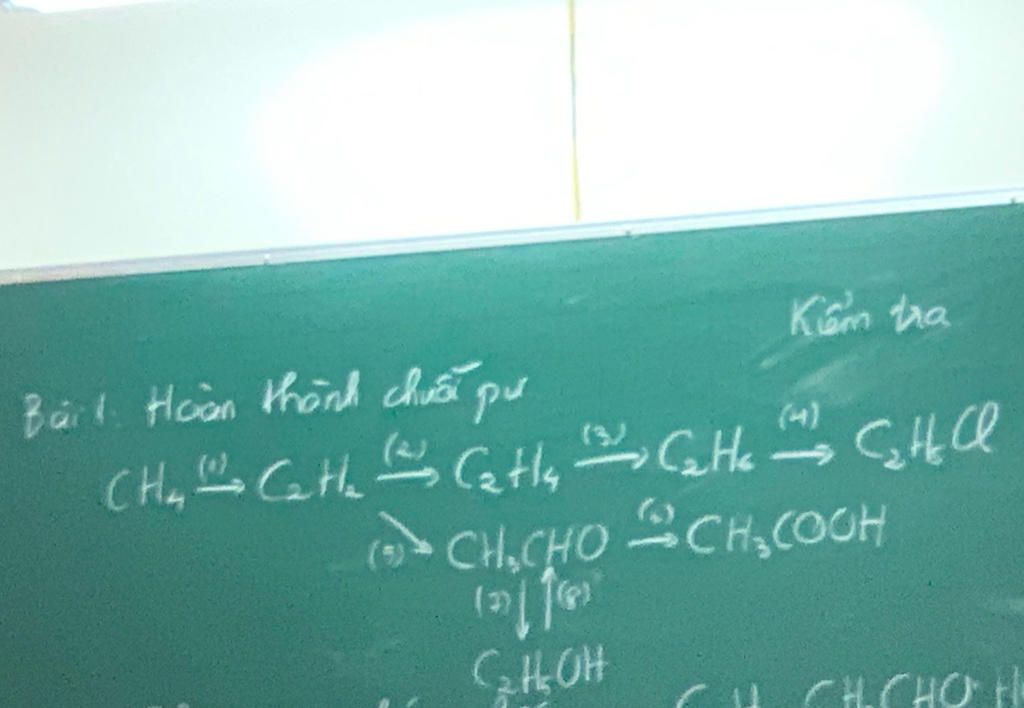 Kiểm tra
Bài 1. Hoàn thành chuỗi pư
CH₄ (1)→ C₂H₂ (2)→ C₂H₄ (3)→ C₂H₆ (4)→ C₂H₅Cl
(5)↘ CH₃CHO (6)→ CH₃COOH
(7)↓ ↑(8)
C₂H₅OH
CH₃CHO